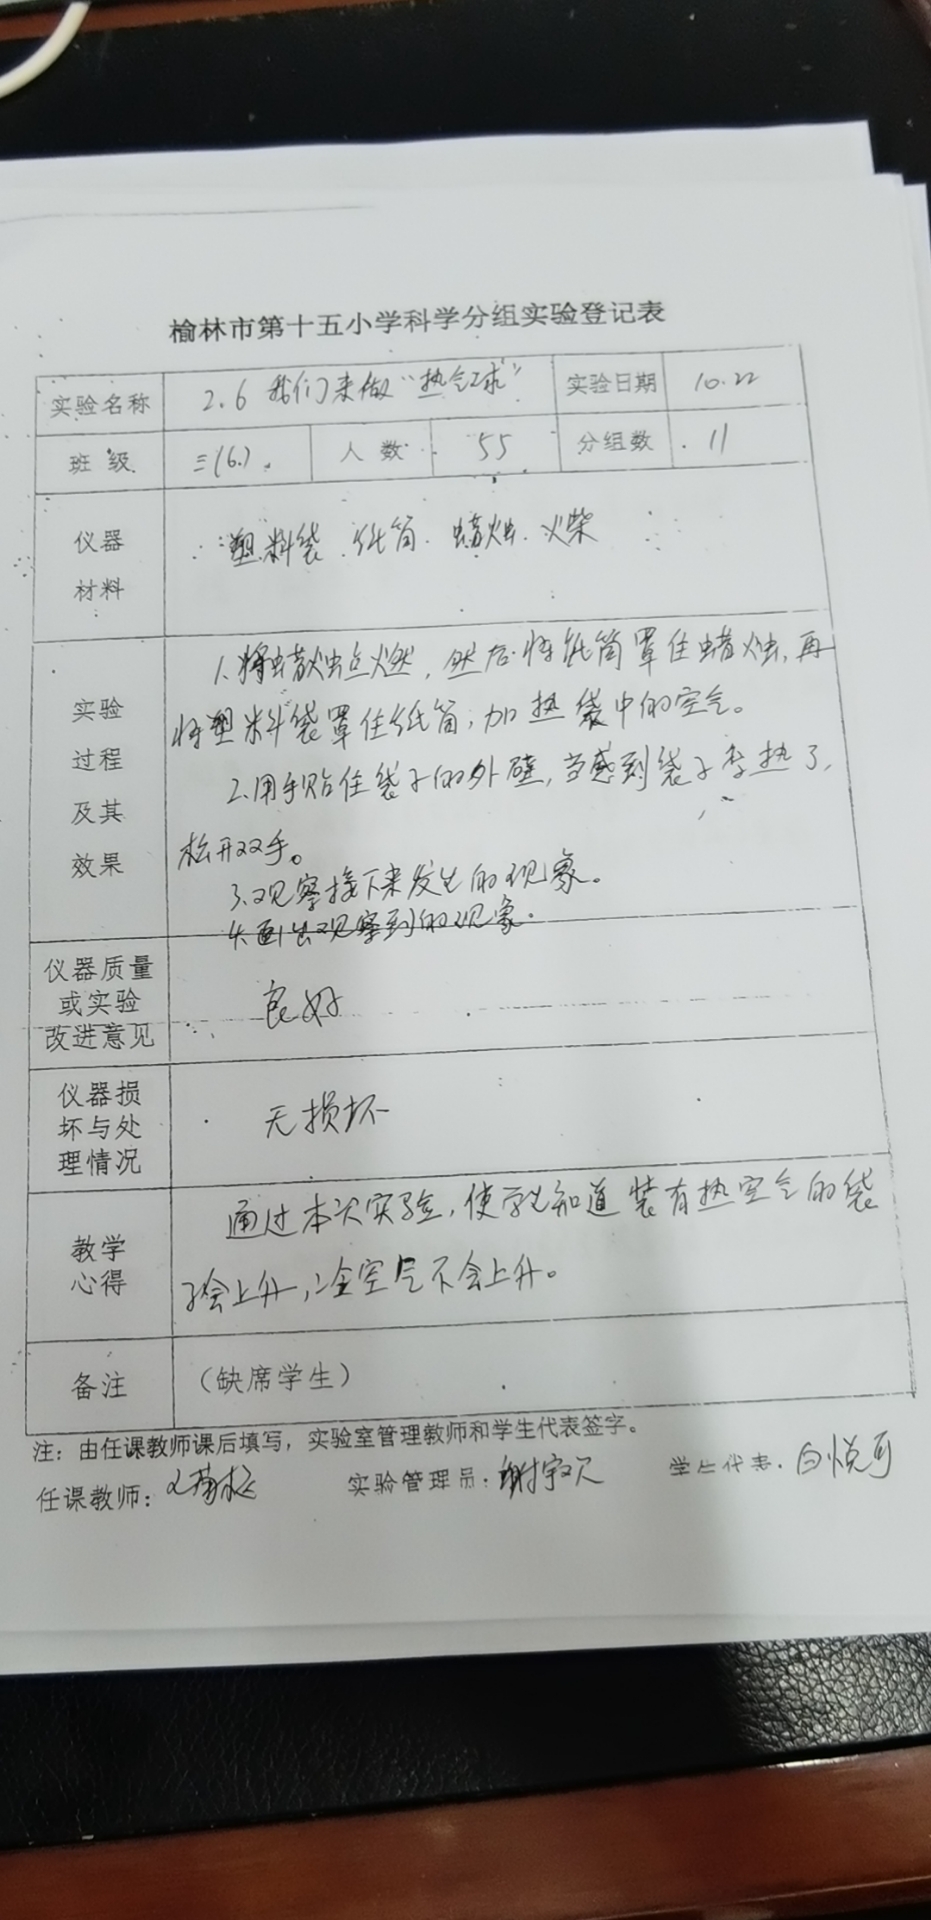 榆林市第十五小学科学分组实验登记表
实验名称 2.6 我们来做“热气球” 实验日期 10.22
班级 三(6) 人数 55 分组数 11
仪器
材料
塑料袋、纸筒、蜡烛、火柴
实验
过程
及其
效果
1.将蜡烛点燃，然后将纸筒罩住蜡烛，再
将塑料袋罩住纸筒，加热袋中的空气。
2.用手贴住袋子的外壁，当感到袋子变热了，
松开双手。
3.观察接下来发生的现象。
4.画出观察到的现象。
仪器质量
或实验
改进意见
良好
仪器损
坏与处
理情况
无损坏
教学
心得
通过本次实验，使学生知道装有热空气的袋
子会上升，冷空气不会上升。
备注 （缺席学生）
注：由任课教师课后填写，实验室管理教师和学生代表签字。
任课教师： 实验管理员： 学生代表：白悦可